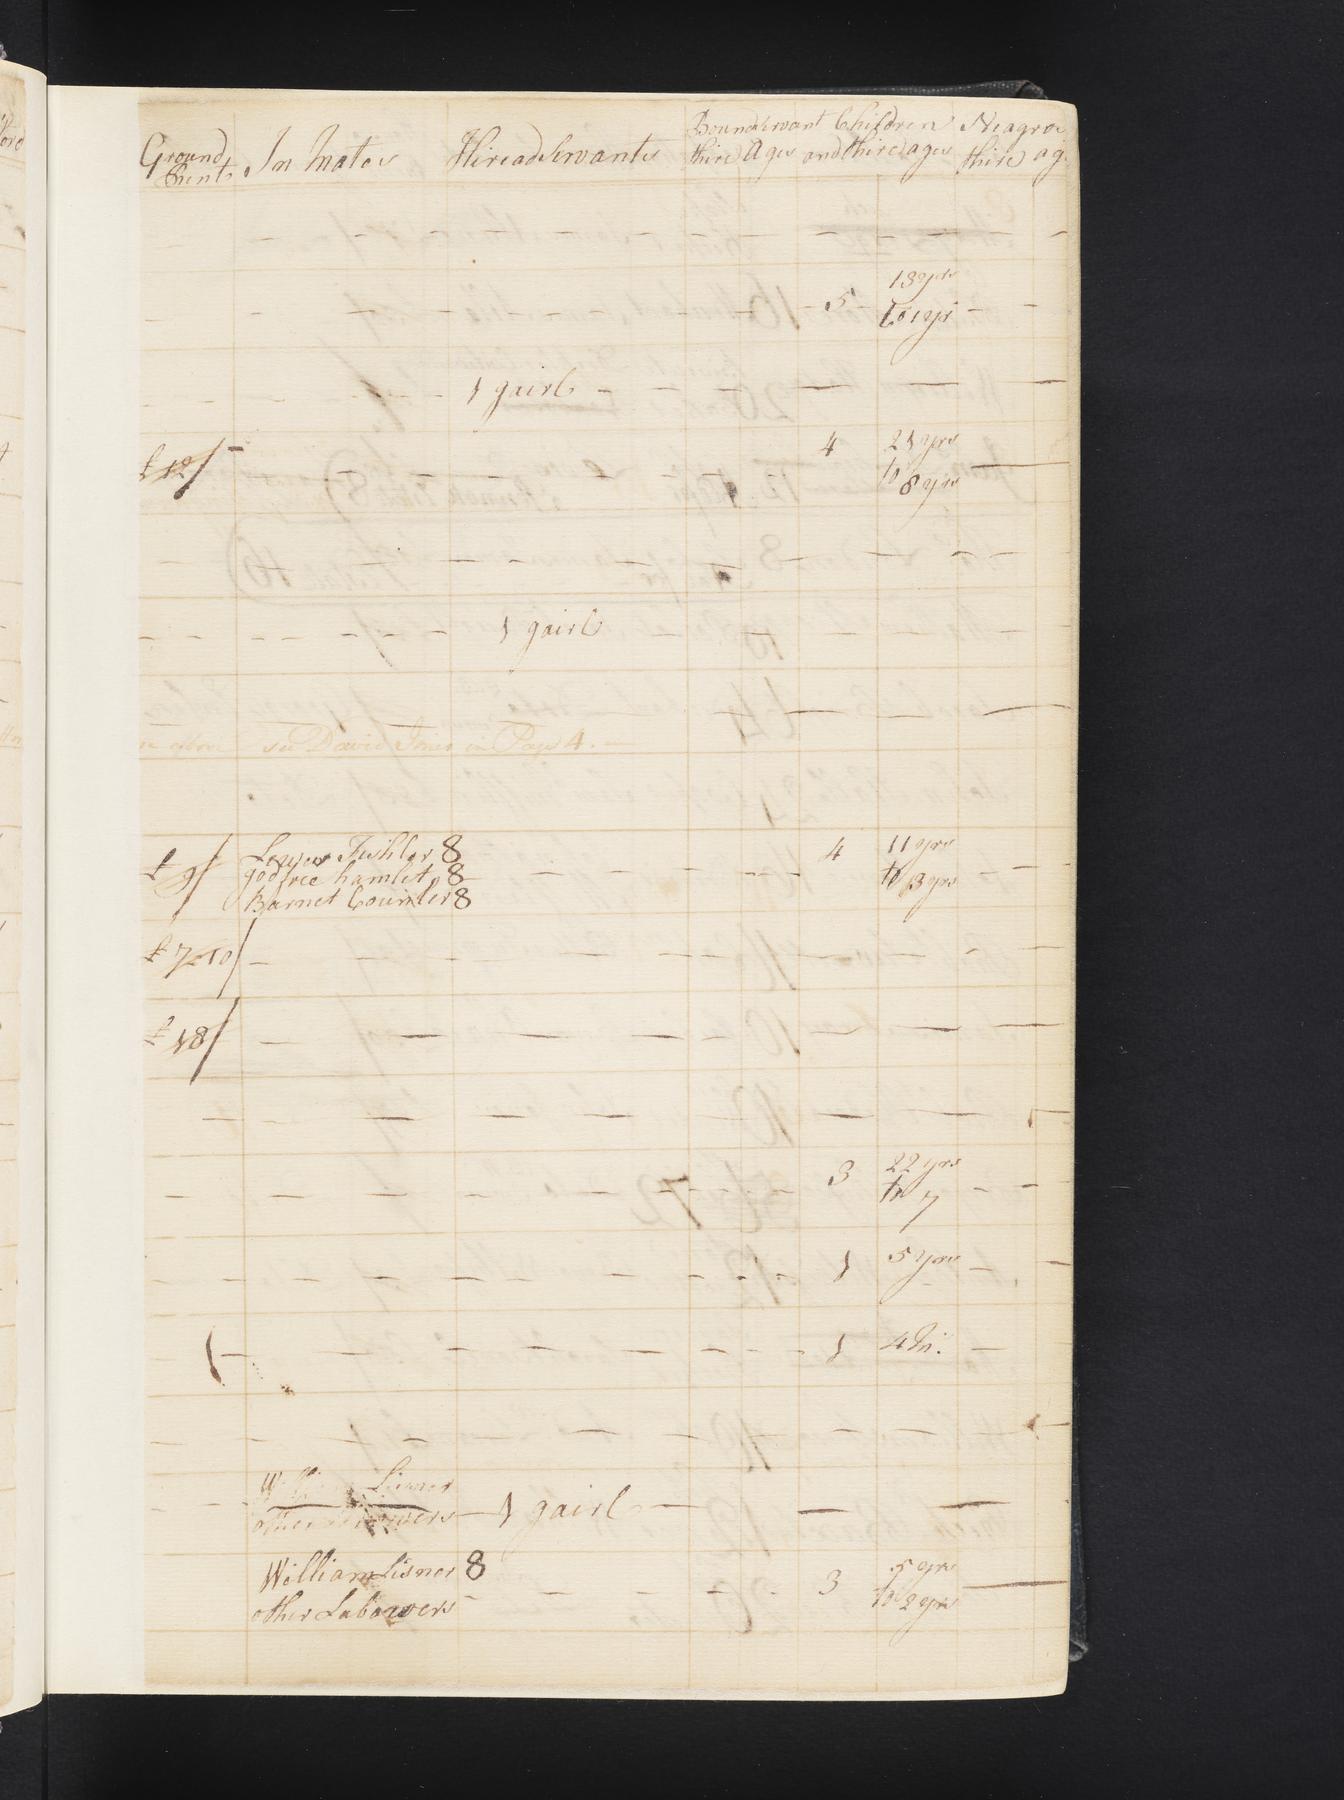 Ground Rent
In Mates
Hiread Servants
Bound Servant thire Ages
Children and thire ages
Neagroe thire ag
5 13 yrs
to 1 yr
1 gairl
£ 12/ 4 21 yrs
to 8 yrs
1 gairl
see David Jones in Page 4.
£ 9/ Fishler 8 4 11 yrs
godfree hamlet 8 to 3 yrs
Barnet Counter 8
£ 7-10/
£ 18/
3 22 yrs
to 7
1 5 yrs
1 4 m.
William Lisner
other 1 gairl
William Lisner 8 3 5 yrs
other Labowers to 2 yrs